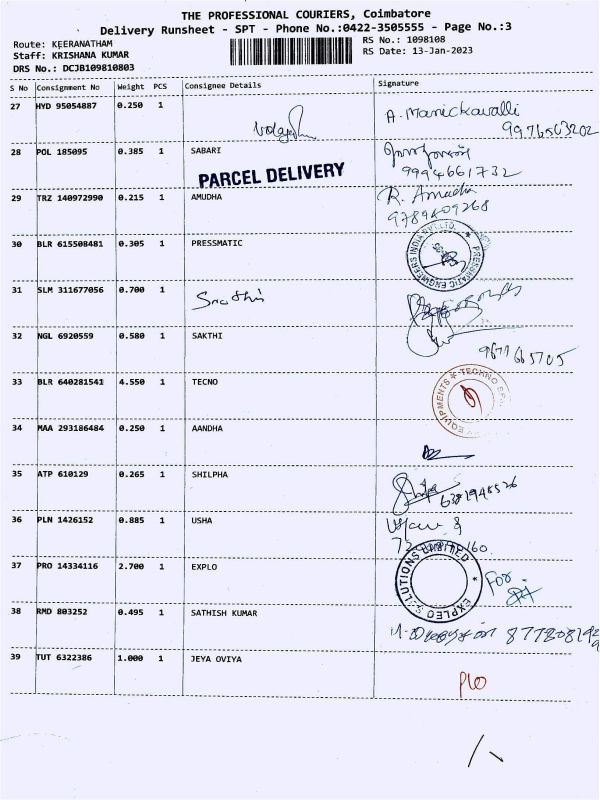 THE PROFESSIONAL COURIERS, Coimbatore
Delivery Runsheet - SPT - Phone No.:0422-3505555 - Page No.:3
Route: KEERANATHAM
RS No.: 1098108
Staff: KRISHANA KUMAR
RS Date: 13-Jan-2023
DRS No.: DCJB109810803
S No Consignment No Weight PCS Consignee Details Signature
27 HYD 95054887 0.250 1 A. Manickavalli
9976563202
28 POL 185095 0.385 1 SABARI
9994661732
PARCEL DELIVERY
29 TRZ 140972990 0.215 1 AMUDHA R. Amudha
9789409268
30 BLR 615508481 0.305 1 PRESSMATIC
PRESSMATIC ENGINEERS INDIA PVT LTD.
31 SLM 311677056 0.700 1
32 NGL 6920559 0.580 1 SAKTHI
9677665705
33 BLR 640281541 4.550 1 TECNO
EQUIPMENTS ★ TECHNO
34 MAA 293186484 0.250 1 AANDHA
35 ATP 610129 0.265 1 SHILPHA
6381948526
36 PLN 1426152 0.885 1 USHA
37 PRO 14334116 2.700 1 EXPLO
EXPLEO SOLUTIONS LIMITED
For
38 RMD 803252 0.495 1 SATHISH KUMAR
39 TUT 6322386 1.000 1 JEYA OVIYA